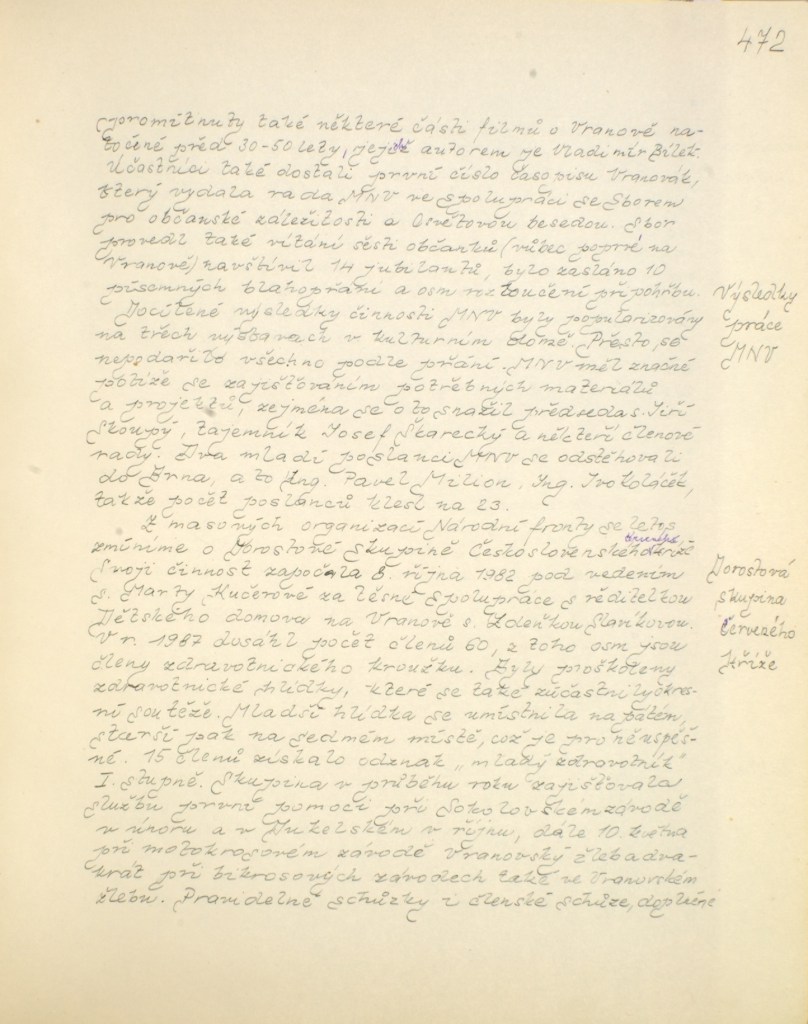 472
promítnuty také některé části filmů o Vranově na-
točené před 30-50 lety, jejichž autorem je Vladimír Bílek.
Účastníci také dostali první číslo časopisu Vranovák,
který vydala rada MNV ve spolupráci se Sborem
pro občanské záležitosti a Osvětovou besedou. Sbor
provedl také vítání šesti občánků (vůbec poprvé na
Vranově) navštívil 14 jubilantů, bylo zasláno 10
písemných blahopřání a osm rozloučení při pohřbu.
Výsledky
práce
MNV
Docílené výsledky činnosti MNV byly popularizovány
na třech výstavách v kulturním domě. Přesto, se
nepodařilo všechno podle přání. MNV měl značné
potíže se zajišťováním potřebných materiálů
a projektů, zejména se o to snažil předseda s. Jiří
Skoupý, tajemník Josef Škarecký a někteří členové
rady. Dva mladí poslanci MNV se odstěhovali
do Brna, a to Ing. Pavel Milion, Ing. Ivo Koláček,
takže počet poslanců klesl na 23.
Z masových organizací Národní fronty se letos
zmíníme o Dorostové skupině Československého červeného kříže
Dorostová
skupina
Červeného
kříže
Svoji činnost započala 8. října 1982 pod vedením
s. Marty Kučerové za těsné spolupráce s ředitelkou
Dětského domova na Vranově s. Zdeňkou Slankovou.
V r. 1987 dosáhl počet členů 60, z toho osm jsou
členy zdravotnického kroužku. Byly proškoleny
zdravotnické hlídky, které se také zúčastnily okres-
ní soutěže. Mladší hlídka se umístnila na pátém,
starší pak na sedmém místě, což je pro ně úspěš-
né. 15 členů získalo odznak „mladý zdravotník"
I. stupně. Skupina v průběhu roku zajišťovala
službu první pomoci při Sokolovském závodě
v únoru a v Dukelském v říjnu, dále 10. května
při motokrosovém závodě Vranovský žleb a dva-
krát při bikrosových závodech také ve Vranovském
žlebu. Pravidelné schůzky i členské schůze, doplněné